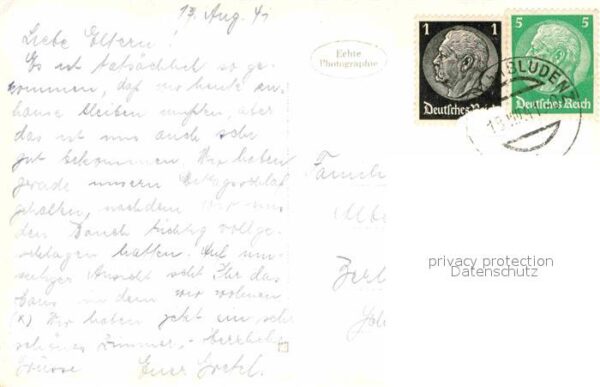 13. Aug. 41
Liebe Eltern!
Es ist tatsächlich so ge-
kommen, daß wir heute zu-
hause bleiben mußten, aber
das ist uns auch sehr
gut bekommen. Wir haben
gerade unsern Mittagsschlaf
gehalten, nachdem wir uns
den Bauch tüchtig vollge-
schlagen hatten. Auf um-
seitiger Ansicht seht Ihr das
Haus in dem wir wohnen
(x) Wir haben jetzt ein sehr
schönes Zimmer. - Herzliche
Grüsse Eure Gretel.
Echte
Photographie
1 1
Deutsches Reich
5 5
Deutsches Reich
Famili
Albe
Zerb
privacy protection
Datenschutz